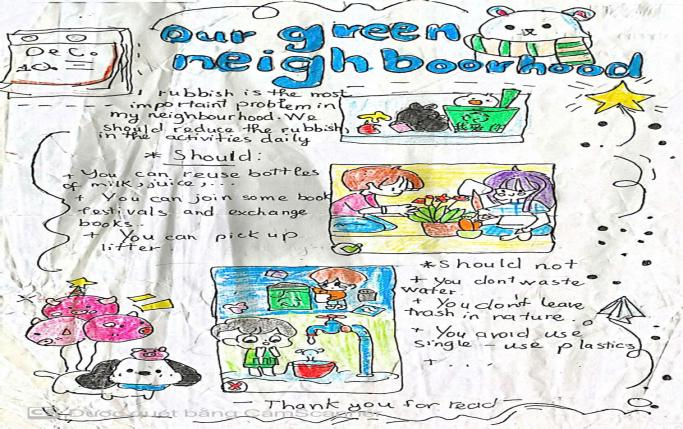 DeCo
10A =
Our green
neighboorhood
rubbish is the most
important problem in
my neighbourhood. We
should reduce the rubbish
in the activities daily
* Should:
+ You can reuse bottles
of milk, juice,...
+ You can join some book
festivals and exchange
books.
+ You can pick up
litter.
* Should not
+ You dont waste
water
+ You don't leave
trash in nature.
+ You avoid use
single-use plastics
+ ....
- Thank you for read -
CS Được quét bằng CamScanner